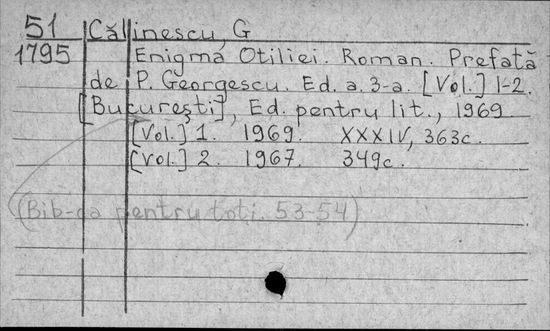 51 Călinescu, G
1795 Enigma Otiliei. Roman. Prefaţă
de P. Georgescu. Ed. a. 3-a. [Vol.] 1-2.
[Bucureşti], Ed. pentru lit., 1969.
[Vol.] 1. 1969. XXXIV, 363c.
[Vol.] 2. 1967. 349c.
(Bib-ca pentru toţi. 53-54)